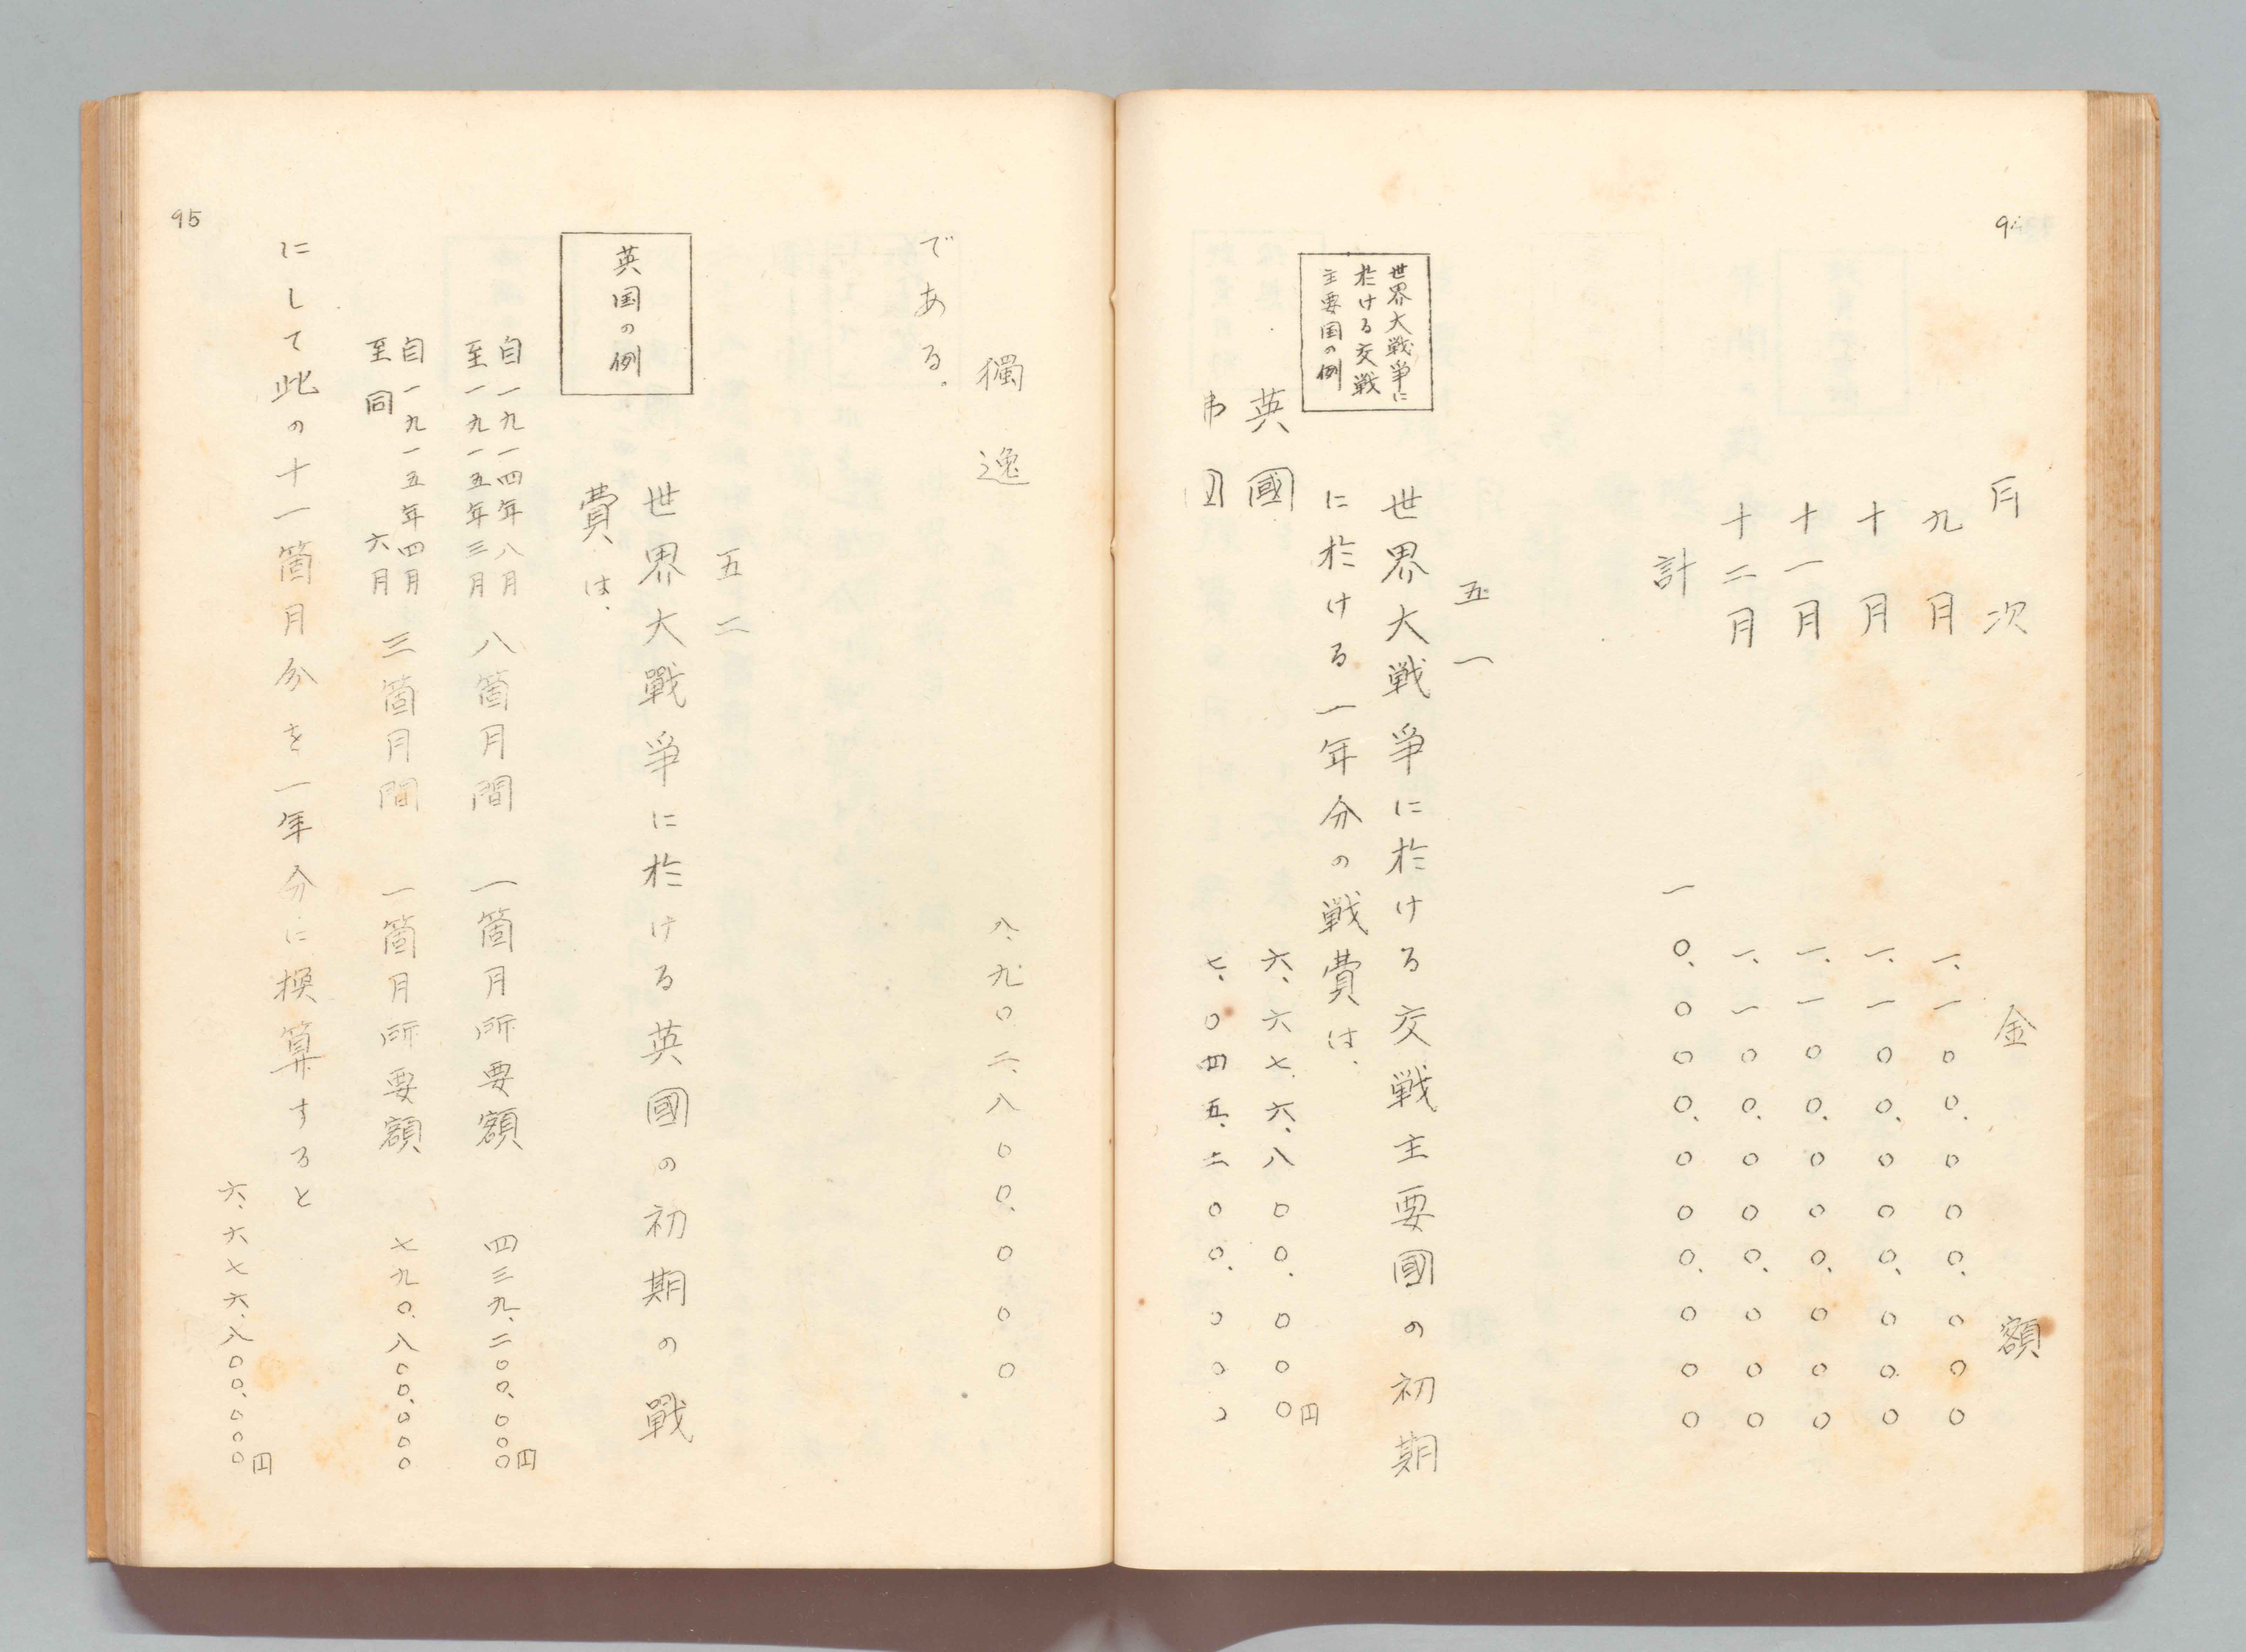 94
月次 金額
九月 一、一〇〇、〇〇〇、〇〇〇
十月 一、一〇〇、〇〇〇、〇〇〇
十一月 一、一〇〇、〇〇〇、〇〇〇
十二月 一、一〇〇、〇〇〇、〇〇〇
計 一〇、〇〇〇、〇〇〇、〇〇〇
五一
世界大戦争に
於ける交戦
主要国の例
世界大戦爭に於ける交戦主要國の初期
に於ける一年分の戦費は、
英國 六、六七六、八〇〇、〇〇〇円
七、〇四五、二〇〇、〇〇〇
獨逸 八、九〇二、八〇〇、〇〇〇
である。
五二
英国の例
世界大戰爭に於ける英國の初期の戰
費は、
自一九一四年八月
至一九一五年三月 八箇月間 一箇月所要額 四三九、二〇〇、〇〇〇円
自一九一五年四月
至同 六月 三箇月間 一箇月所要額 七九〇、八〇〇、〇〇〇
にして此の十一箇月分を一年分に換算すると
六、六七六、八〇〇、〇〇〇円
95